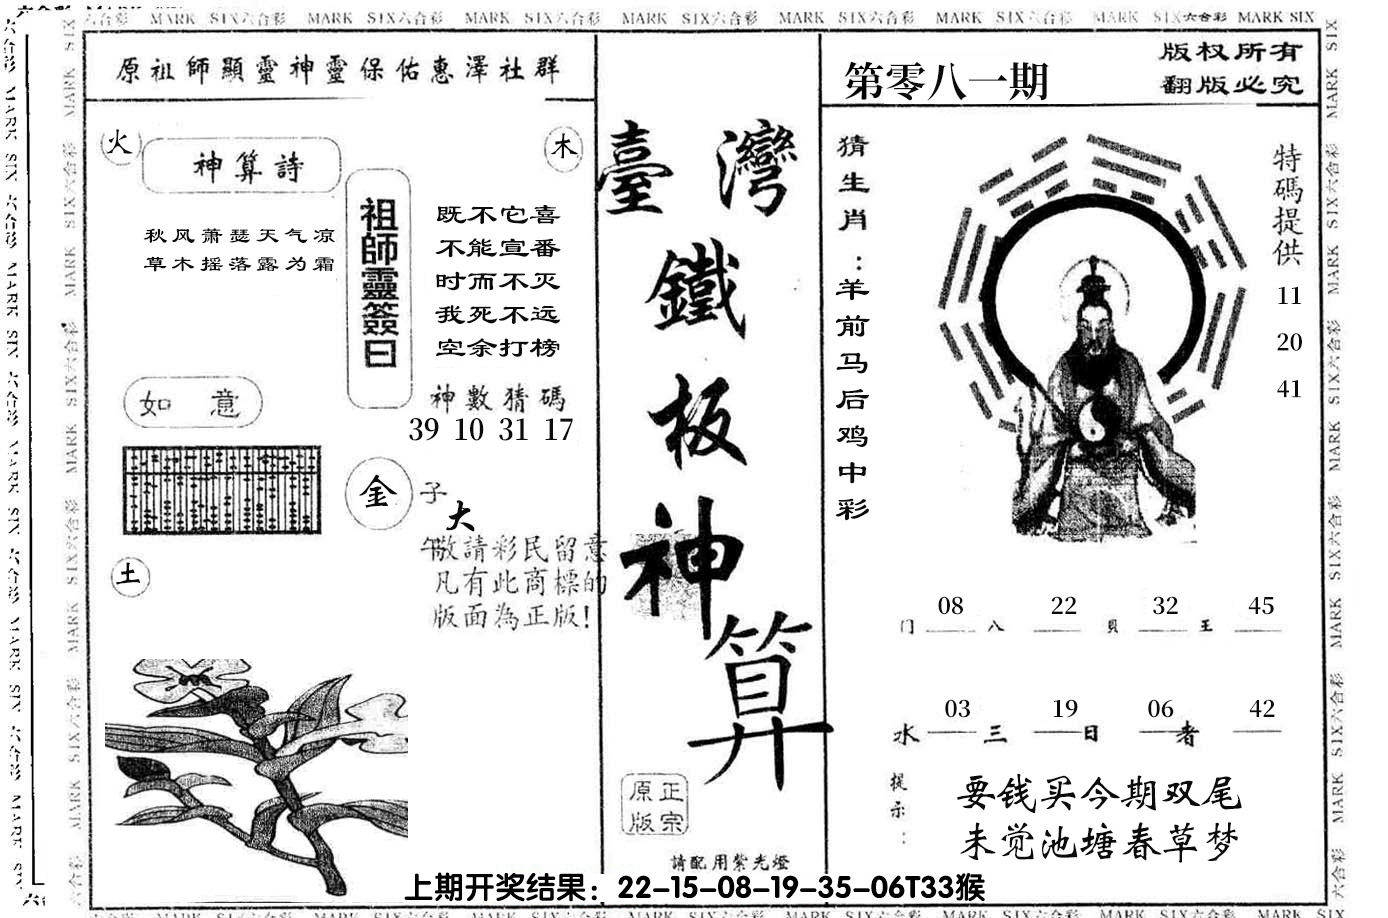 MARK SIX六合彩 MARK SIX六合彩 MARK SIX六合彩 MARK SIX六合彩 MARK SIX六合彩 MARK SIX六合彩 MARK SIX六合彩 MARK SIX
原祖師顯靈神靈保佑惠澤社群
火
神算詩
木
秋风萧瑟天气凉
草木摇落露为霜
祖師靈簽曰
既不它喜
不能宣番
时而不灭
我死不远
空余打榜
如意
神數猜碼
39 10 31 17
金
子
大
午敬請彩民留意
凡有此商標的
版面為正版！
土
臺灣
鐵板神算
正宗
原版
請配用紫光燈
第零八一期
版权所有
翻版必究
猜生肖：羊前马后鸡中彩
特碼提供
11
20
41
08 22 32 45
门 八 貝 王
03 19 06 42
水 三 日 者
提示：
要钱买今期双尾
未觉池塘春草梦
上期开奖结果：22-15-08-19-35-06T33猴